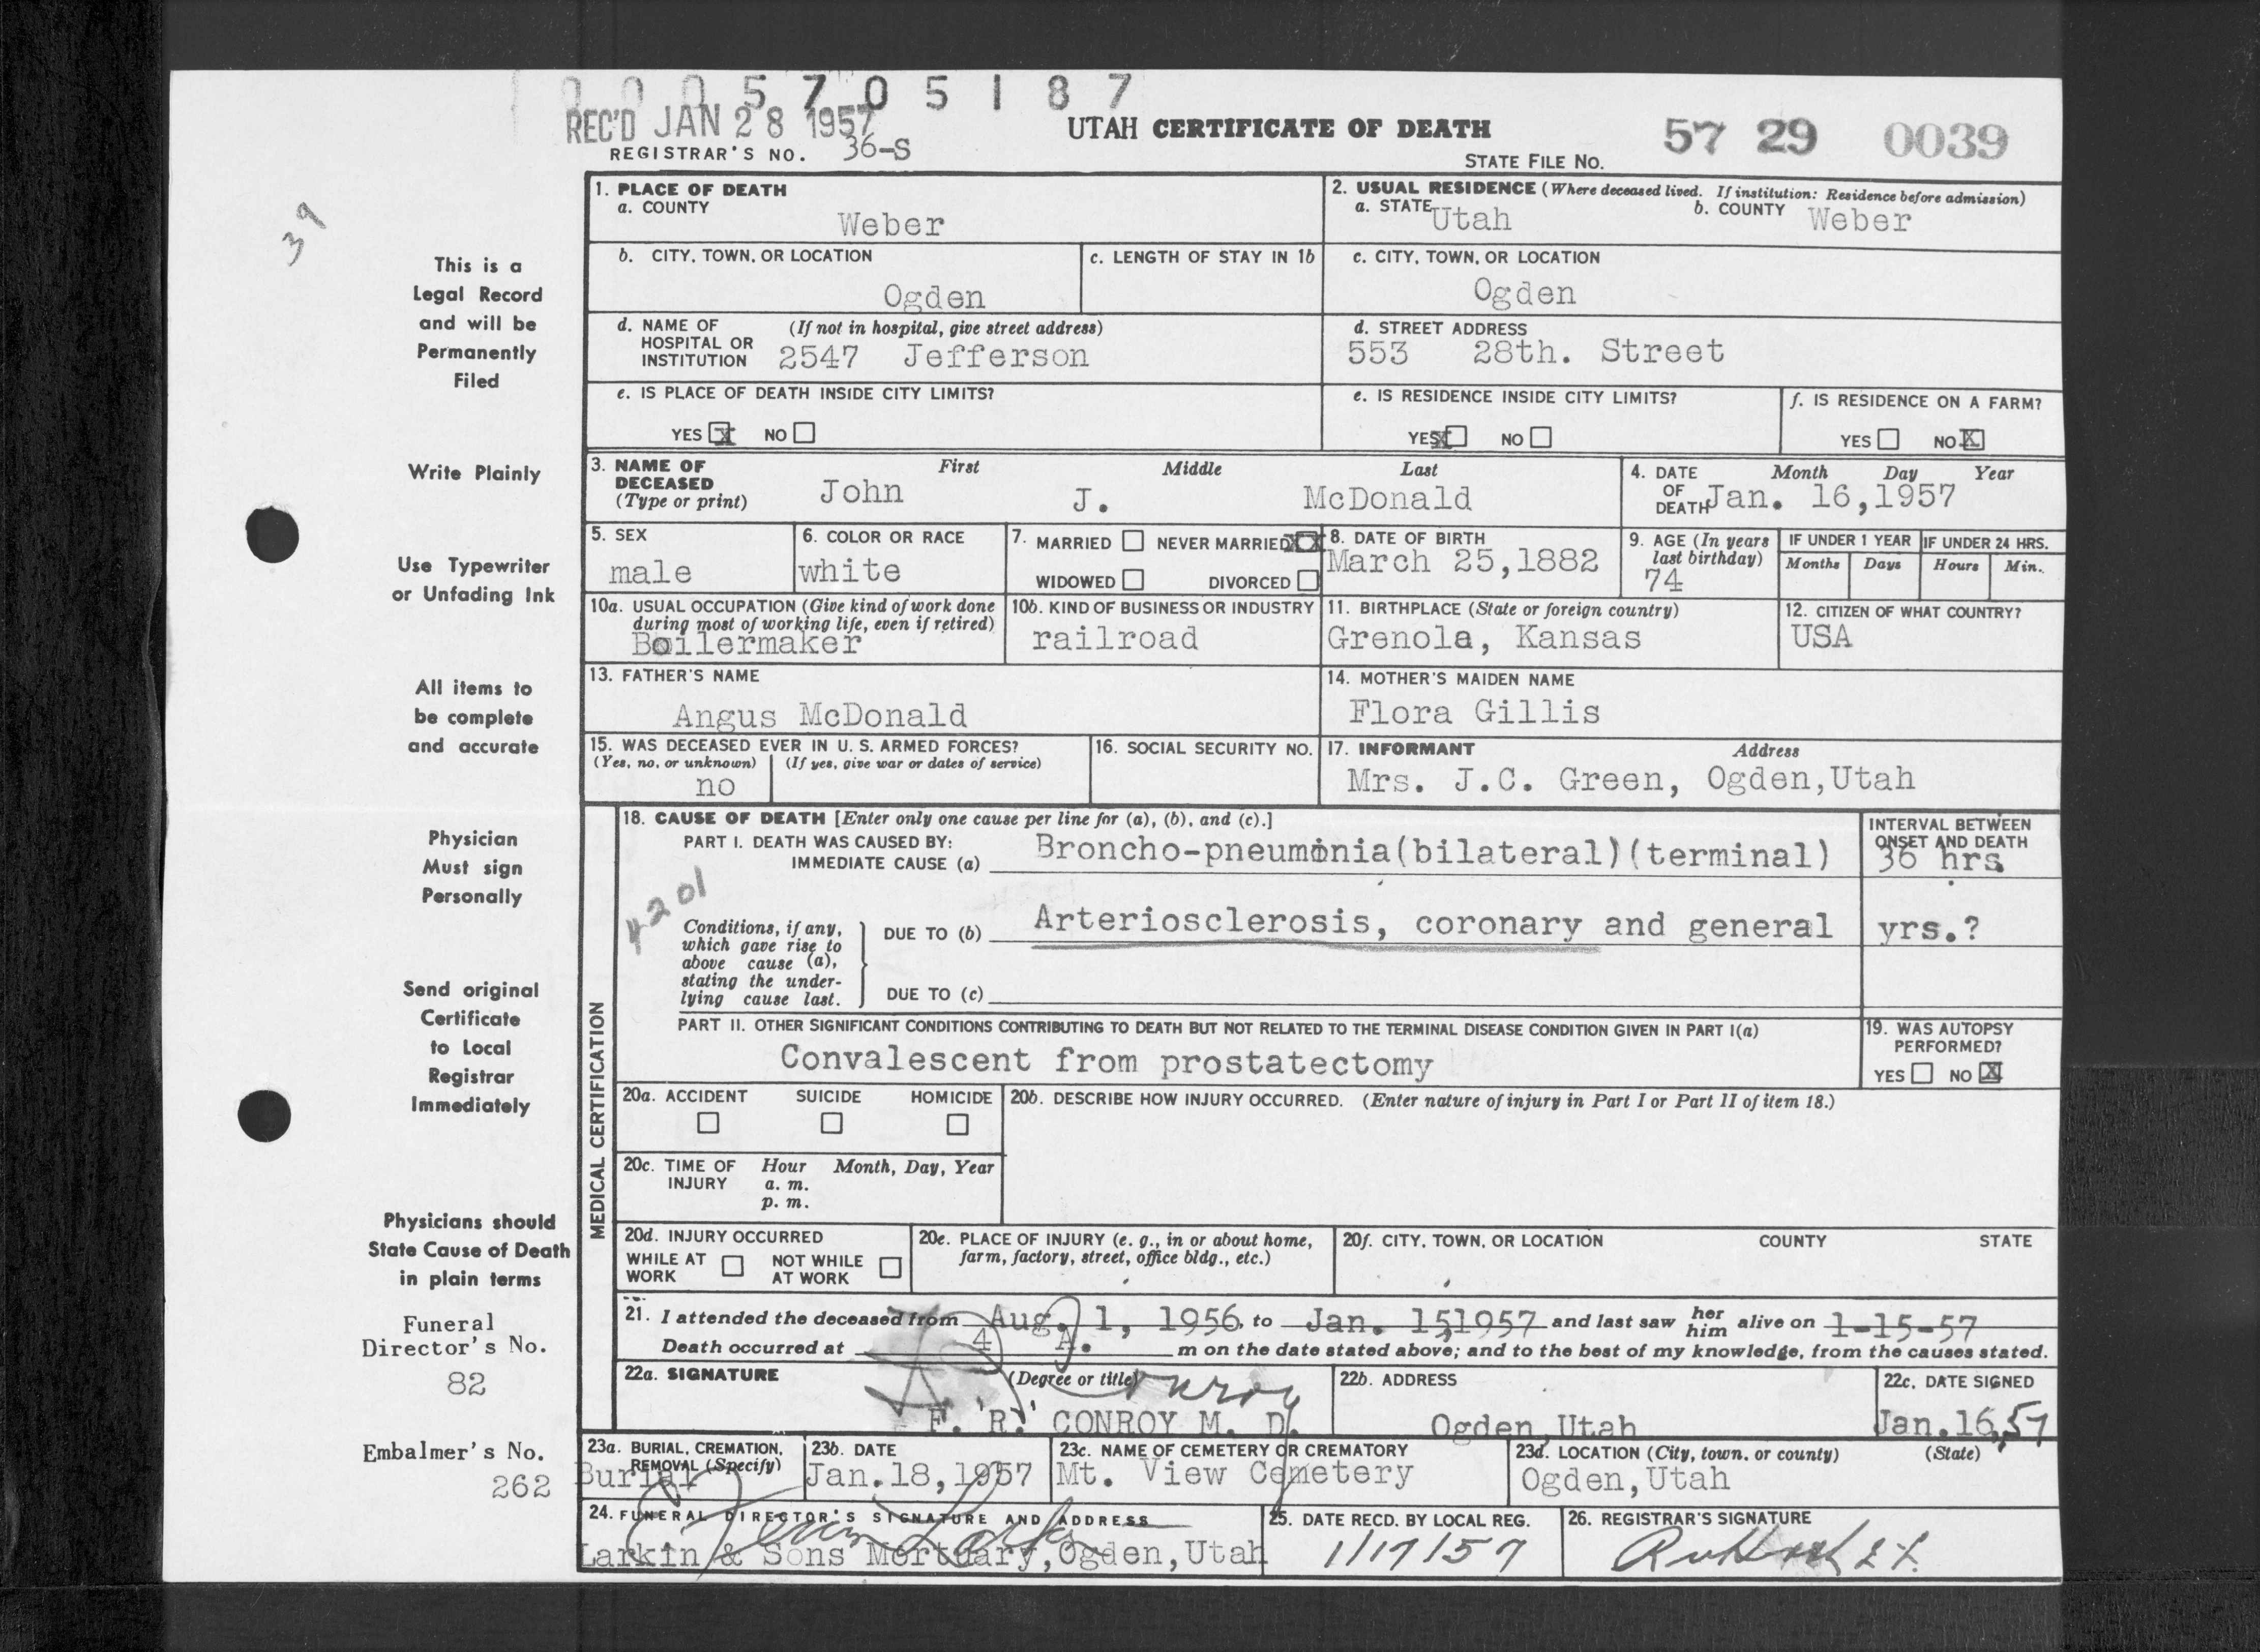 0 0 0 5 7 0 5 1 8 7
REC'D JAN 28 1957
UTAH CERTIFICATE OF DEATH
57 29 0039
REGISTRAR'S NO. 36-S
STATE FILE NO.
39
This is a
Legal Record
and will be
Permanently
Filed
Write Plainly
Use Typewriter
or Unfading Ink
All items to
be complete
and accurate
Physician
Must sign
Personally
Send original
Certificate
to Local
Registrar
Immediately
Physicians should
State Cause of Death
in plain terms
Funeral
Director's No.
82
Embalmer's No.
262
1. PLACE OF DEATH
a. COUNTY
Weber
2. USUAL RESIDENCE (Where deceased lived. If institution: Residence before admission)
a. STATE Utah b. COUNTY Weber
b. CITY, TOWN, OR LOCATION
Ogden
c. LENGTH OF STAY IN 1b
c. CITY, TOWN, OR LOCATION
Ogden
d. NAME OF (If not in hospital, give street address)
HOSPITAL OR
INSTITUTION 2547 Jefferson
d. STREET ADDRESS
553 28th. Street
e. IS PLACE OF DEATH INSIDE CITY LIMITS?
YES X NO
e. IS RESIDENCE INSIDE CITY LIMITS?
YES X NO
f. IS RESIDENCE ON A FARM?
YES NO X
3. NAME OF First Middle Last
DECEASED
(Type or print) John J. McDonald
4. DATE Month Day Year
OF
DEATH Jan. 16,1957
5. SEX
male
6. COLOR OR RACE
white
7. MARRIED NEVER MARRIED XX
WIDOWED DIVORCED
8. DATE OF BIRTH
March 25,1882
9. AGE (In years
last birthday)
74
IF UNDER 1 YEAR IF UNDER 24 HRS.
Months Days Hours Min.
10a. USUAL OCCUPATION (Give kind of work done
during most of working life, even if retired)
Boilermaker
10b. KIND OF BUSINESS OR INDUSTRY
railroad
11. BIRTHPLACE (State or foreign country)
Grenola, Kansas
12. CITIZEN OF WHAT COUNTRY?
USA
13. FATHER'S NAME
Angus McDonald
14. MOTHER'S MAIDEN NAME
Flora Gillis
15. WAS DECEASED EVER IN U. S. ARMED FORCES?
(Yes, no, or unknown) (If yes, give war or dates of service)
no
16. SOCIAL SECURITY NO.
17. INFORMANT Address
Mrs. J.C. Green, Ogden,Utah
MEDICAL CERTIFICATION
18. CAUSE OF DEATH [Enter only one cause per line for (a), (b), and (c).]
PART I. DEATH WAS CAUSED BY:
IMMEDIATE CAUSE (a) Broncho-pneumonia(bilateral)(terminal)
INTERVAL BETWEEN
ONSET AND DEATH
36 hrs.
4201
Conditions, if any,
which gave rise to
above cause (a),
stating the under-
lying cause last.
DUE TO (b) Arteriosclerosis, coronary and general yrs.?
DUE TO (c)
PART II. OTHER SIGNIFICANT CONDITIONS CONTRIBUTING TO DEATH BUT NOT RELATED TO THE TERMINAL DISEASE CONDITION GIVEN IN PART I(a)
Convalescent from prostatectomy
19. WAS AUTOPSY
PERFORMED?
YES NO X
20a. ACCIDENT SUICIDE HOMICIDE
20b. DESCRIBE HOW INJURY OCCURRED. (Enter nature of injury in Part I or Part II of item 18.)
20c. TIME OF Hour Month, Day, Year
INJURY a. m.
p. m.
20d. INJURY OCCURRED
WHILE AT NOT WHILE
WORK AT WORK
20e. PLACE OF INJURY (e. g., in or about home,
farm, factory, street, office bldg., etc.)
20f. CITY, TOWN, OR LOCATION COUNTY STATE
21. I attended the deceased from Aug. 1, 1956, to Jan. 15,1957 and last saw her him alive on 1-15-57
Death occurred at 4 A. m on the date stated above; and to the best of my knowledge, from the causes stated.
22a. SIGNATURE (Degree or title)
Conroy
F. R. CONROY M. D.
22b. ADDRESS
Ogden,Utah
22c. DATE SIGNED
Jan.16,57
23a. BURIAL, CREMATION,
REMOVAL (Specify)
Burial
23b. DATE
Jan.18,1957
23c. NAME OF CEMETERY OR CREMATORY
Mt. View Cemetery
23d. LOCATION (City, town, or county) (State)
Ogden,Utah
24. FUNERAL DIRECTOR'S SIGNATURE AND ADDRESS
Larkin & Sons Mortuary,Ogden,Utah
25. DATE RECD. BY LOCAL REG.
1/17/57
26. REGISTRAR'S SIGNATURE